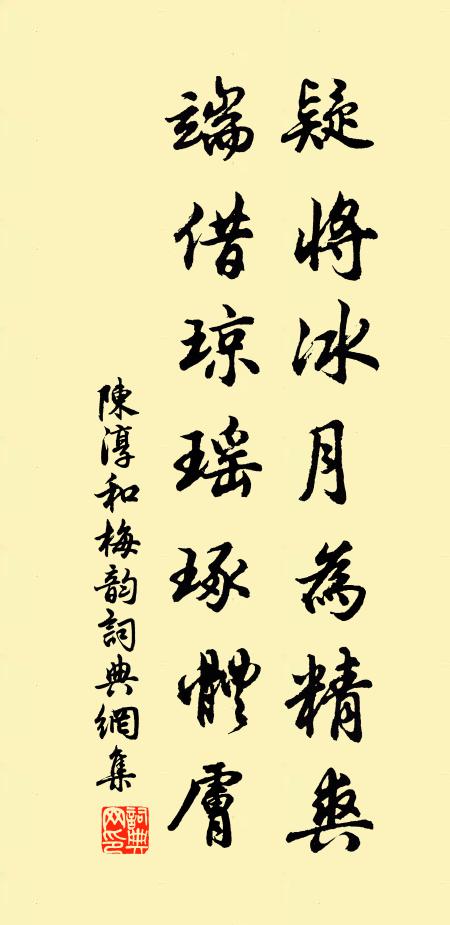 疑將冰月為精爽
端借琼瑶琢體膚
陳淳和梅韵詞典網集
詞典
网印